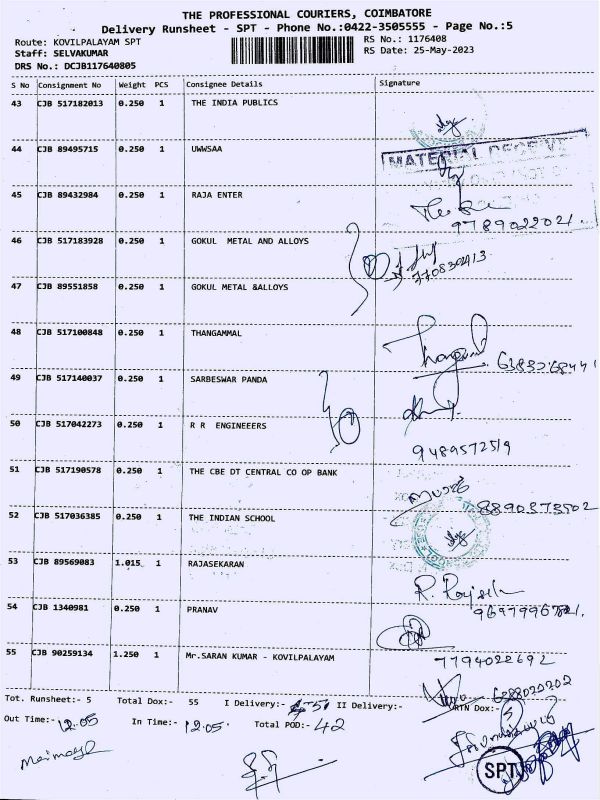 THE PROFESSIONAL COURIERS, COIMBATORE
Delivery Runsheet - SPT - Phone No.:0422-3505555 - Page No.:5
Route: KOVILPALAYAM SPT RS No.: 1176408
Staff: SELVAKUMAR RS Date: 25-May-2023
DRS No.: DCJB117640805
S No Consignment No Weight PCS Consignee Details Signature
43 CJB 517182013 0.250 1 THE INDIA PUBLICS
44 CJB 89495715 0.250 1 UWWSAA
MATERIAL RECEIVE
45 CJB 89432984 0.250 1 RAJA ENTER
9789022021.
46 CJB 517183928 0.250 1 GOKUL METAL AND ALLOYS
47 CJB 89551858 0.250 1 GOKUL METAL &ALLOYS
48 CJB 517100848 0.250 1 THANGAMMAL
49 CJB 517140037 0.250 1 SARBESWAR PANDA
50 CJB 517042273 0.250 1 R R ENGINEEERS
9489572519
51 CJB 517190578 0.250 1 THE CBE DT CENTRAL CO OP BANK
8890373502
52 CJB 517036385 0.250 1 THE INDIAN SCHOOL
53 CJB 89569083 1.015 1 RAJASEKARAN
54 CJB 1340981 0.250 1 PRANAV
55 CJB 90259134 1.250 1 Mr.SARAN KUMAR - KOVILPALAYAM
7794022692
Tot. Runsheet:- 5 Total Dox:- 55 I Delivery:- II Delivery:- RTN Dox:- 5
Out Time:- 12.05 In Time:- 12.05 Total POD:- 42
SPT